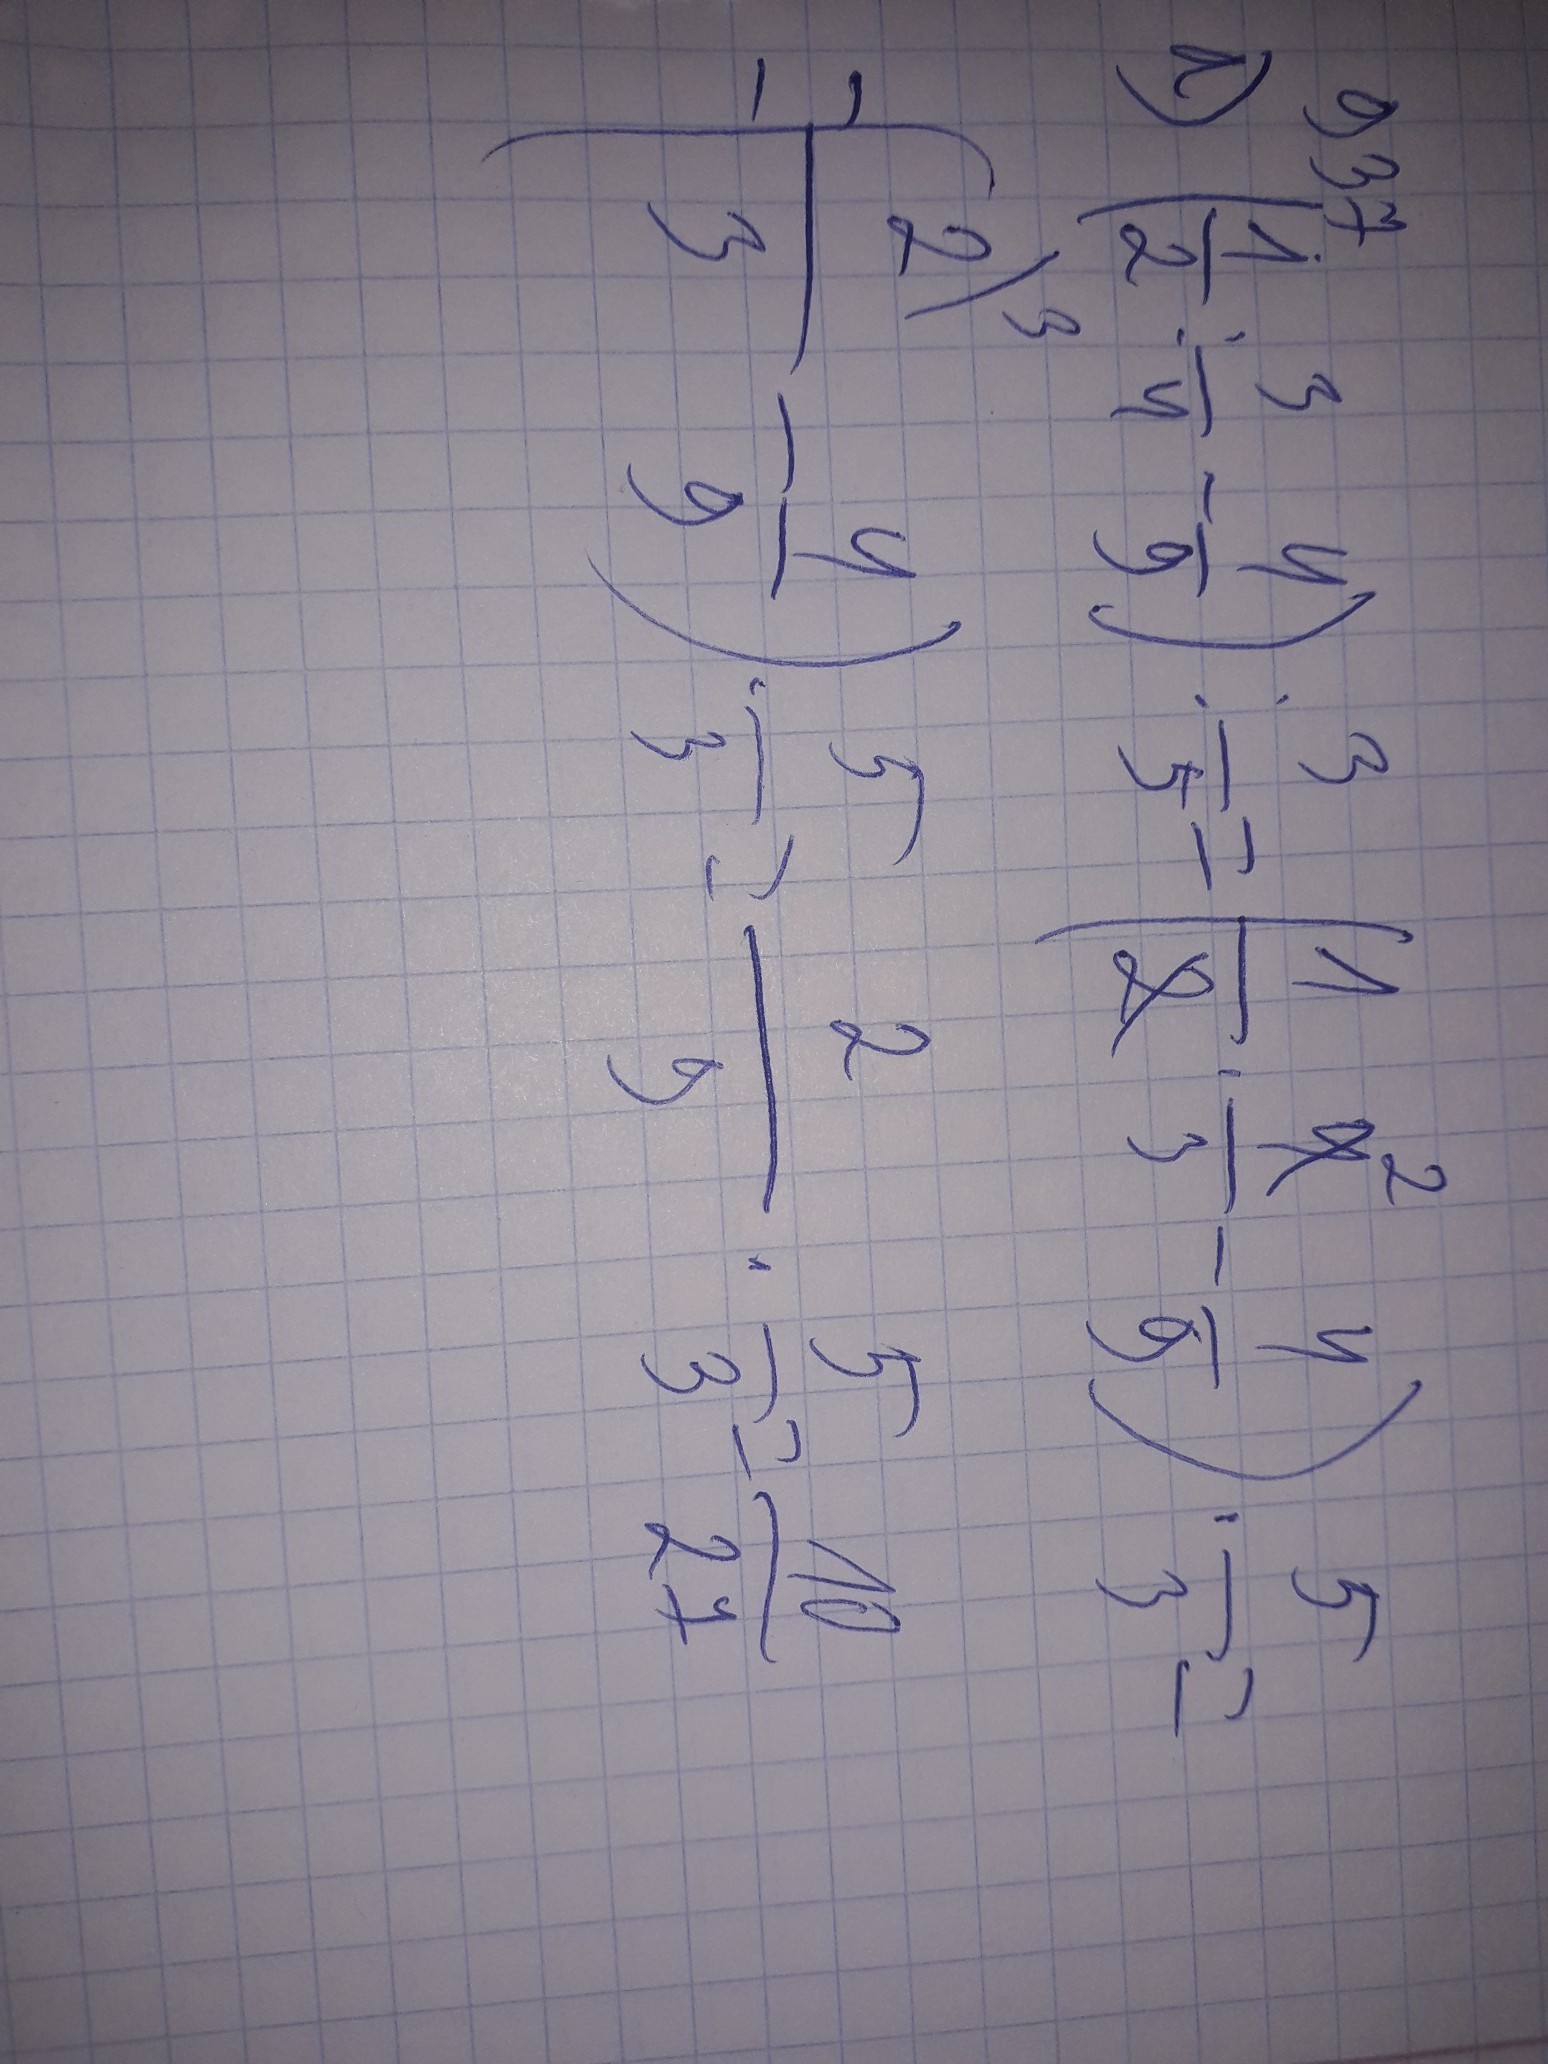 937
1) (1/2 : 3/4 - 4/9) : 3/5 = (1/2 · 4²/3 - 4/9) · 5/3 =
= (2/3 ⁾³ - 4/9) · 5/3 = 2/9 · 5/3 = 10/27